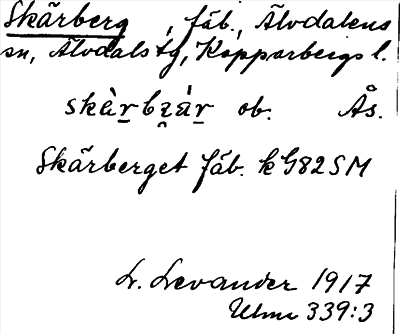 Skärberg, fäb., Älvdalens
sn, Älvdals tg, Kopparbergs l.
skàr̲bz̨ár̲ ob. Ås.
Skärberget fäb. k G82SM
L. Levander 1917
Ulma 339:3